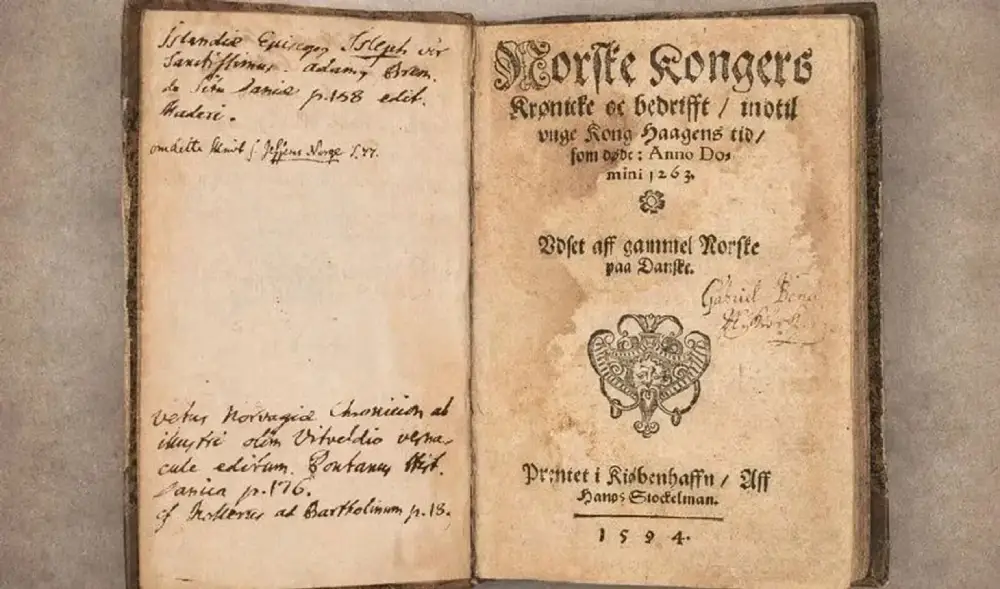 Islandiæ Episcop. Isleph vir
Sanctissimus. Adamg Brem.
de Situ Daniæ p.158 edit.
Maderi.
om dette Jeffens Norge S.77.
vetus Norvagiæ Chronicon ab
illustri olim Vitveldio verna-
cule editum. Pontanus Hist.
Danica p.176.
cf Mollerus ad Bartholinum p.18.
Norske Kongers
Krønicke oc bedrifft / indtil
vnge Kong Haagens tid /
som døde: Anno Do-
mini 1263.
Vdset aff gammel Norske
paa Danske.
Gabriel
Prentet i Kiøbenhaffn / Aff
Hanns Stockelman.
1594.